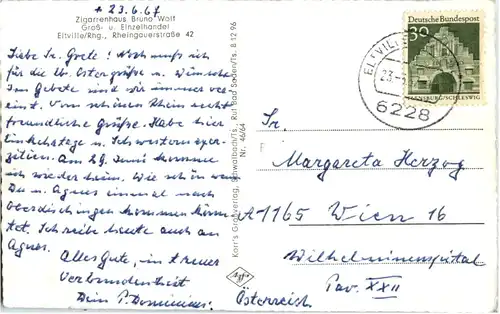 * 23.6.67
Zigarrenhaus Bruno Wolf
Groß- u. Einzelhandel
Eltville/Rhg., Rheingauerstraße 42
Liebe Sr. Grete! Noch muß ich
für die lb. Ostergrüße u. Wünsche
Im Gebete sind wir immer ver-
eint. Vom schönen Rhein recht
freundliche Grüße. Habe hier
Einkehrtage u. Schwesternexer-
zitien. Am 29. Juni komme
ich wieder heim. Wie schön wenn
Du u. Agnes einmal nach
Oberdischingen kommen könn-
tet. Schreibe heute auch an
Agnes.
Alles Gute, in treuer
Verbundenheit
Dein P. Dominicus.
Korr's Großverlag, Schwalbach/Ts., Ruf Bad Soden/Ts. 8 12 96
Nr. 46/64
Agfa
Deutsche Bundespost
30
FLENSBURG/SCHLESWIG
ELTVILLE
23.-
6228
Sr.
Margareta Herzog
A-1165 Wien 16
Wilhelminenspital
Pav. XXII
Österreich